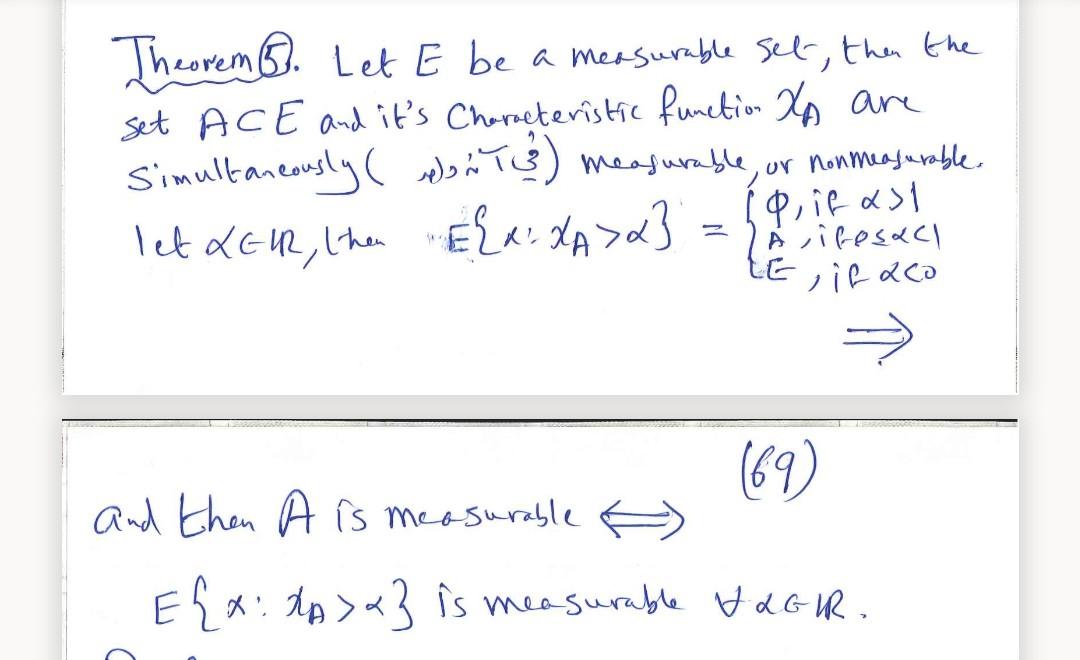 Theorem ⑤. Let E be a measurable set, then the
set A⊂E and it's Characteristic function χ_A are
Simultaneously ( في آن واحد ) measurable, or nonmeasurable.
let α∈ℝ, then E{x: χ_A > α} = { Φ, if α>1
A, if 0≤α<1
E, if α<0
⟹
(69)
and then A is measurable ⟺
E{x: χ_A > α} is measurable ∀ α∈ℝ.